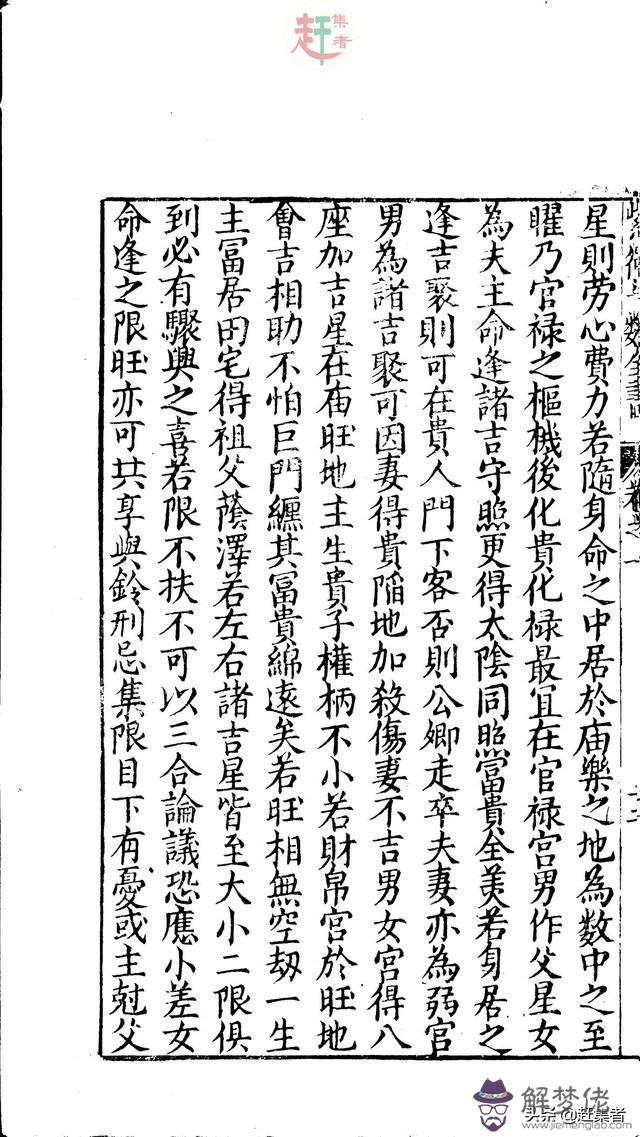 赶集者
數全書
卷之一
十二
星則劳心費力若隨身命之中居於庙樂之地為数中之至
曜乃官禄之樞機後化貴化禄最宜在官禄宫男作父星女
為夫主命逢諸吉守照更得太陰同照富貴全美若身居之
逢吉聚則可在貴人門下客否則公卿走卒夫妻亦為弱宫
男為諸吉聚可因妻得貴陷地加殺傷妻不吉男女宫得八
座加吉星在庙旺地主生貴子權柄不小若財帛宫於旺地
會吉相助不怕巨門纏其富貴綿遠矣若旺相無空劫一生
主富居田宅得祖父蔭澤若左右諸吉星皆至大小二限俱
到必有驟興之喜若限不扶不可以三合論議恐應小差女
命逢之限旺亦可共享與鈴刑忌集限目下有憂或主尅父
解梦佬
头条@赶集者
www.jiemenglab.com